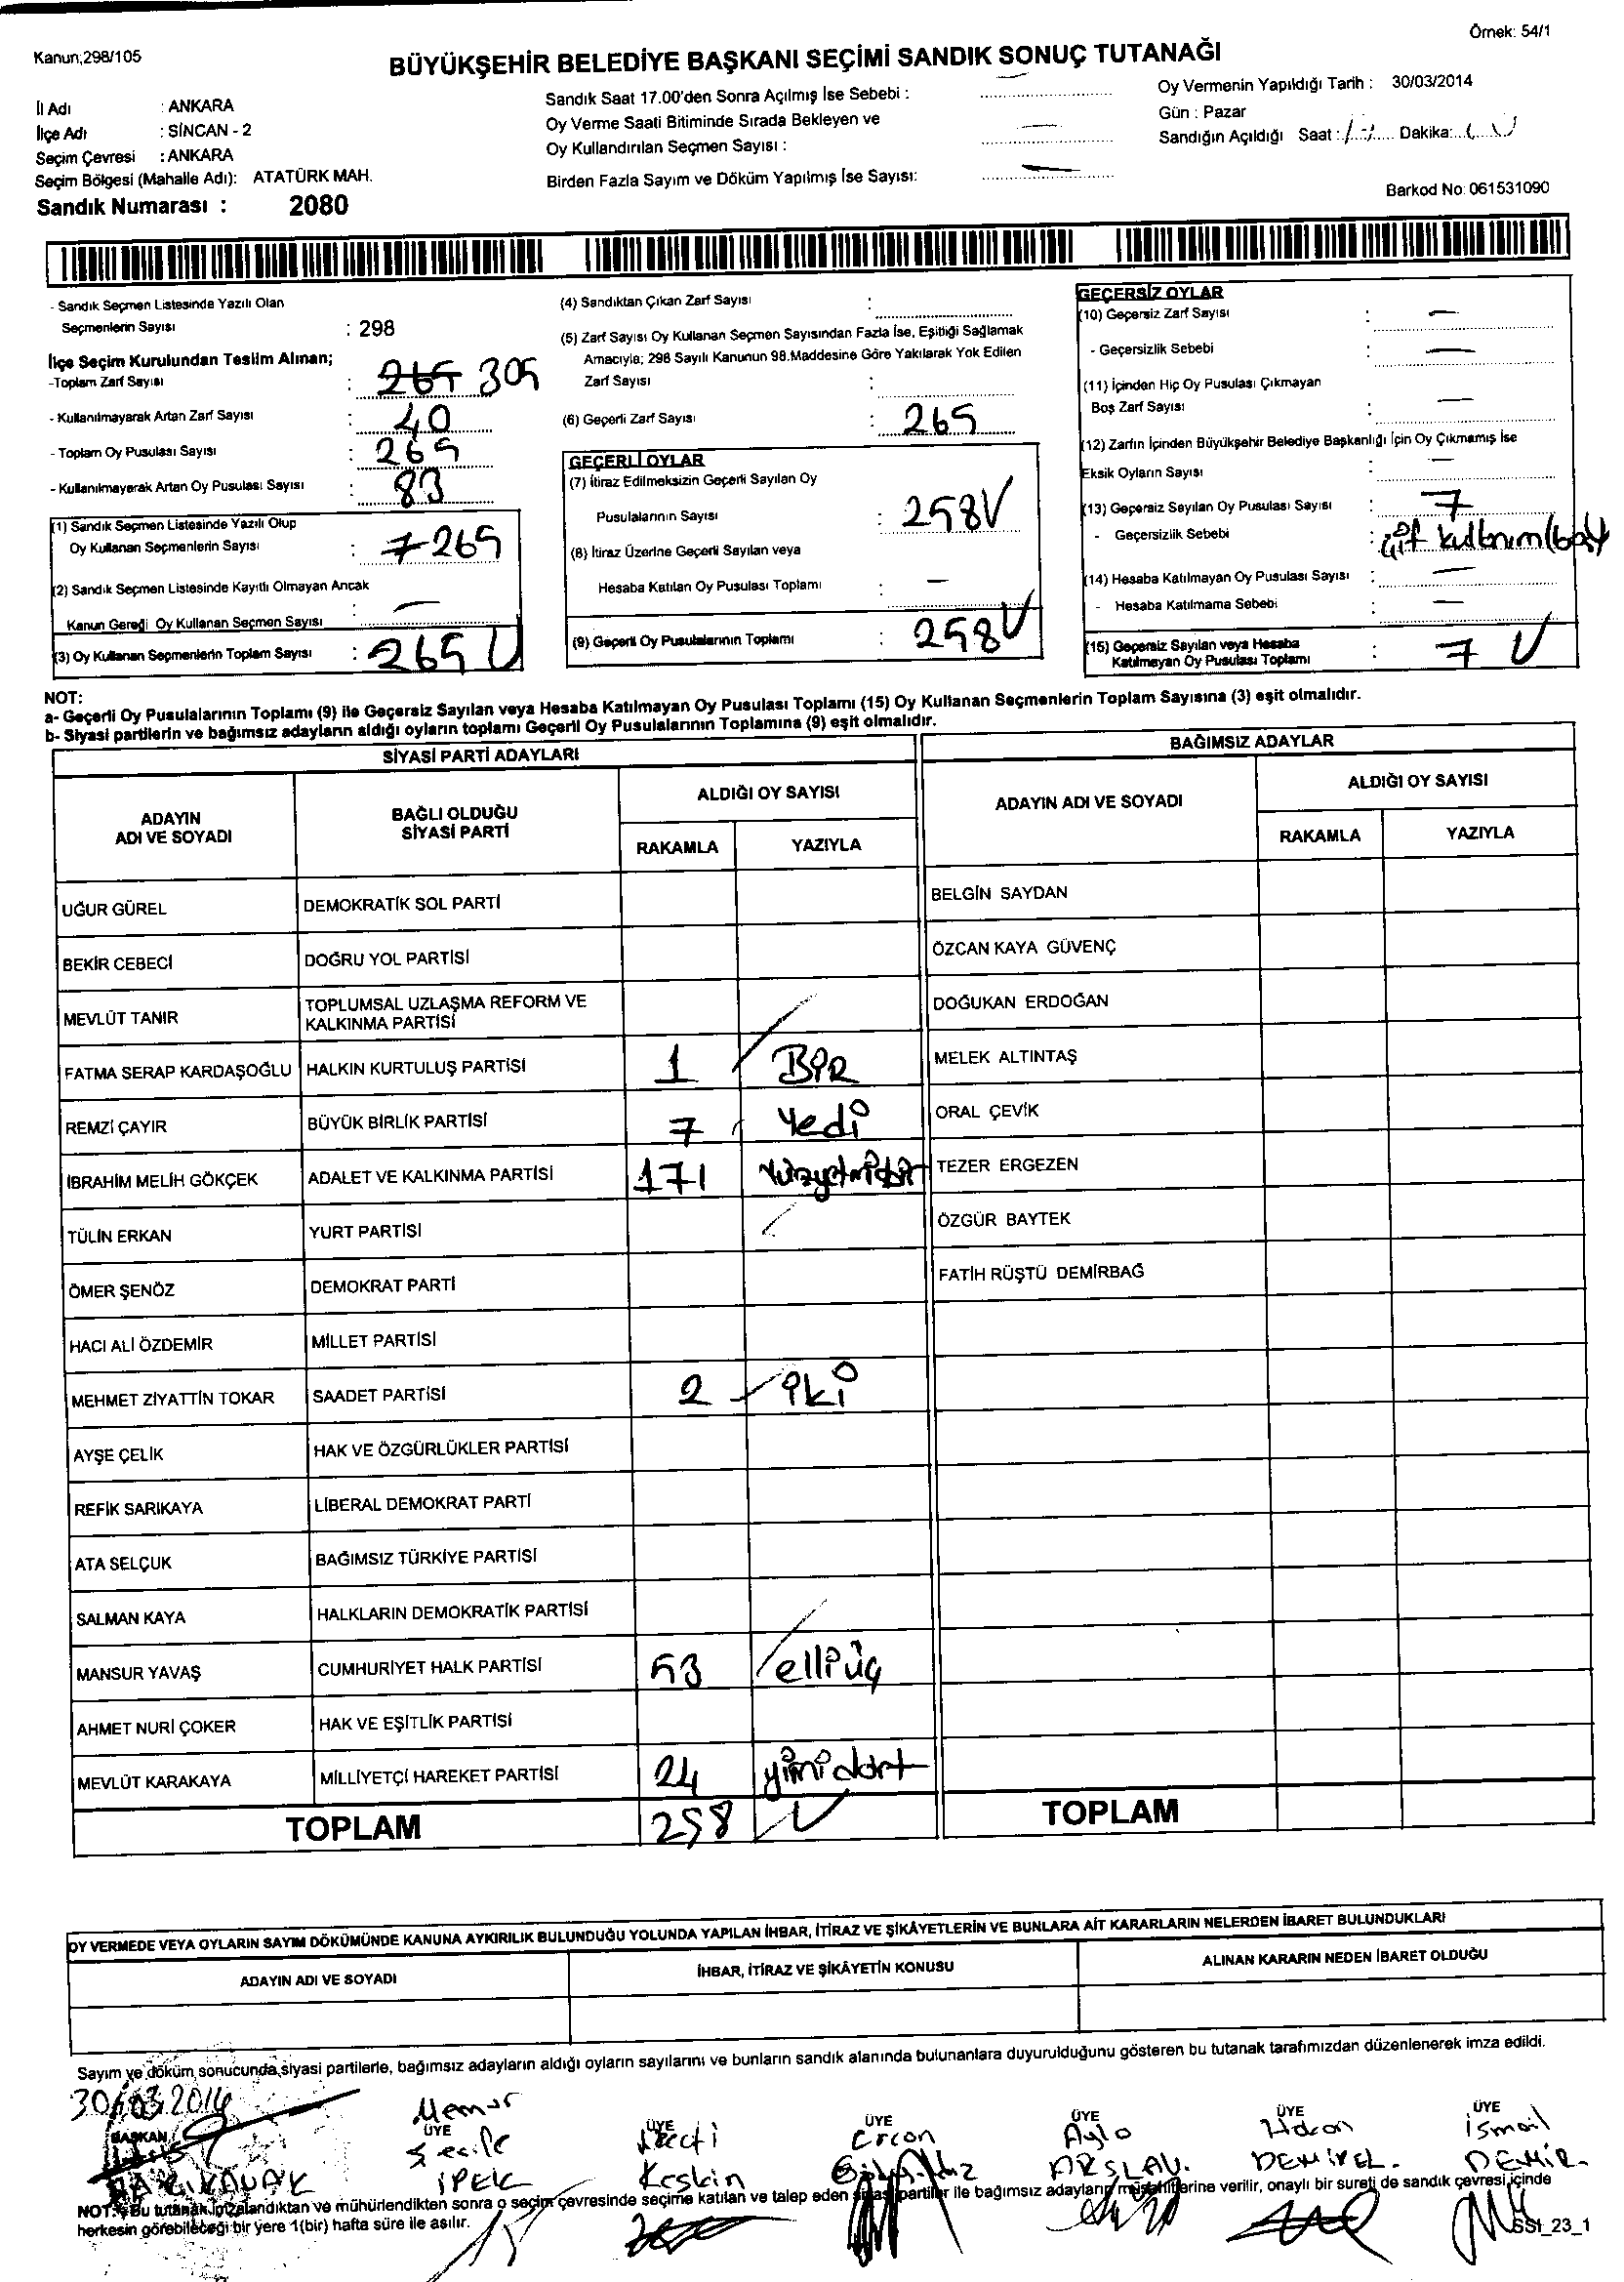 Örnek: 54/1
Kanun;298/105
BÜYÜKŞEHİR BELEDİYE BAŞKANI SEÇİMİ SANDIK SONUÇ TUTANAĞI
İl Adı : ANKARA
İlçe Adı : SİNCAN - 2
Seçim Çevresi : ANKARA
Seçim Bölgesi (Mahalle Adı): ATATÜRK MAH.
Sandık Numarası : 2080
Sandık Saat 17.00'den Sonra Açılmış İse Sebebi : —
Oy Verme Saati Bitiminde Sırada Bekleyen ve
Oy Kullandırılan Seçmen Sayısı : —
Birden Fazla Sayım ve Döküm Yapılmış İse Sayısı: —
Oy Vermenin Yapıldığı Tarih : 30/03/2014
Gün : Pazar
Sandığın Açıldığı Saat : Dakika:
Barkod No: 061531090
- Sandık Seçmen Listesinde Yazılı Olan
Seçmenlerin Sayısı : 298
İlçe Seçim Kurulundan Teslim Alınan;
-Toplam Zarf Sayısı : 265 305
- Kullanılmayarak Artan Zarf Sayısı : 40
- Toplam Oy Pusulası Sayısı : 265
- Kullanılmayarak Artan Oy Pusulası Sayısı : 83
(1) Sandık Seçmen Listesinde Yazılı Olup
Oy Kullanan Seçmenlerin Sayısı : 7 265
(2) Sandık Seçmen Listesinde Kayıtlı Olmayan Ancak
Kanun Gereği Oy Kullanan Seçmen Sayısı : —
(3) Oy Kullanan Seçmenlerin Toplam Sayısı : 265
(4) Sandıktan Çıkan Zarf Sayısı :
(5) Zarf Sayısı Oy Kullanan Seçmen Sayısından Fazla İse, Eşitliği Sağlamak
Amacıyla; 298 Sayılı Kanunun 98.Maddesine Göre Yakılarak Yok Edilen
Zarf Sayısı :
(6) Geçerli Zarf Sayısı : 265
GEÇERLİ OYLAR
(7) İtiraz Edilmeksizin Geçerli Sayılan Oy
Pusulalarının Sayısı : 258
(8) İtiraz Üzerine Geçerli Sayılan veya
Hesaba Katılan Oy Pusulası Toplamı : —
(9) Geçerli Oy Pusulalarının Toplamı : 258
GEÇERSİZ OYLAR
(10) Geçersiz Zarf Sayısı : —
- Geçersizlik Sebebi : —
(11) İçinden Hiç Oy Pusulası Çıkmayan
Boş Zarf Sayısı : —
(12) Zarfın İçinden Büyükşehir Belediye Başkanlığı İçin Oy Çıkmamış İse
Eksik Oyların Sayısı : —
(13) Geçersiz Sayılan Oy Pusulası Sayısı : 7
- Geçersizlik Sebebi : çift
(14) Hesaba Katılmayan Oy Pusulası Sayısı : —
- Hesaba Katılmama Sebebi : —
(15) Geçersiz Sayılan veya Hesaba
Katılmayan Oy Pusulası Toplamı : 7
NOT:
a- Geçerli Oy Pusulalarının Toplamı (9) ile Geçersiz Sayılan veya Hesaba Katılmayan Oy Pusulası Toplamı (15) Oy Kullanan Seçmenlerin Toplam Sayısına (3) eşit olmalıdır.
b- Siyasi partilerin ve bağımsız adayların aldığı oyların toplamı Geçerli Oy Pusulalarının Toplamına (9) eşit olmalıdır.
SİYASİ PARTİ ADAYLARI
ADAYIN ADI VE SOYADI
BAĞLI OLDUĞU SİYASİ PARTİ
ALDIĞI OY SAYISI
RAKAMLA YAZIYLA
UĞUR GÜREL DEMOKRATİK SOL PARTİ
BEKİR CEBECİ DOĞRU YOL PARTİSİ
MEVLÜT TANIR TOPLUMSAL UZLAŞMA REFORM VE
KALKINMA PARTİSİ
FATMA SERAP KARDAŞOĞLU HALKIN KURTULUŞ PARTİSİ 1 BİR
REMZİ ÇAYIR BÜYÜK BİRLİK PARTİSİ 7 Yedi
İBRAHİM MELİH GÖKÇEK ADALET VE KALKINMA PARTİSİ 171
TÜLİN ERKAN YURT PARTİSİ
ÖMER ŞENÖZ DEMOKRAT PARTİ
HACI ALİ ÖZDEMİR MİLLET PARTİSİ
MEHMET ZİYATTİN TOKAR SAADET PARTİSİ 2 iki
AYŞE ÇELİK HAK VE ÖZGÜRLÜKLER PARTİSİ
REFİK SARIKAYA LİBERAL DEMOKRAT PARTİ
ATA SELÇUK BAĞIMSIZ TÜRKİYE PARTİSİ
SALMAN KAYA HALKLARIN DEMOKRATİK PARTİSİ
MANSUR YAVAŞ CUMHURİYET HALK PARTİSİ 53 elliüç
AHMET NURİ ÇOKER HAK VE EŞİTLİK PARTİSİ
MEVLÜT KARAKAYA MİLLİYETÇİ HAREKET PARTİSİ 24 yimidört
TOPLAM 258
BAĞIMSIZ ADAYLAR
ADAYIN ADI VE SOYADI
ALDIĞI OY SAYISI
RAKAMLA YAZIYLA
BELGİN SAYDAN
ÖZCAN KAYA GÜVENÇ
DOĞUKAN ERDOĞAN
MELEK ALTINTAŞ
ORAL ÇEVİK
TEZER ERGEZEN
ÖZGÜR BAYTEK
FATİH RÜŞTÜ DEMİRBAĞ
TOPLAM
OY VERMEDE VEYA OYLARIN SAYIM DÖKÜMÜNDE KANUNA AYKIRILIK BULUNDUĞU YOLUNDA YAPILAN İHBAR, İTİRAZ VE ŞİKÂYETLERİN VE BUNLARA AİT KARARLARIN NELERDEN İBARET BULUNDUKLARI
ADAYIN ADI VE SOYADI İHBAR, İTİRAZ VE ŞİKÂYETİN KONUSU ALINAN KARARIN NEDEN İBARET OLDUĞU
Sayım ve döküm sonucunda siyasi partilerle, bağımsız adayların aldığı oyların sayılarını ve bunların sandık alanında bulunanlara duyurulduğunu gösteren bu tutanak tarafımızdan düzenlenerek imza edildi.
30/03/2014
BAŞKAN
Memur
ÜYE
İPEK
ÜYE
Keskin
ÜYE
Ercan
ÜYE
Ayla
ARSLAN.
ÜYE
Hakan
DEMİREL.
ÜYE
İsmail
DEMİR.
NOT: Bu tutanak imzalandıktan ve mühürlendikten sonra o seçim çevresinde seçime katılan ve talep eden siyasi partiler ile bağımsız adayların müşahitlerine verilir, onaylı bir sureti de sandık çevresi içinde
herkesin görebileceği bir yere 1(bir) hafta süre ile asılır.
SSt_23_1